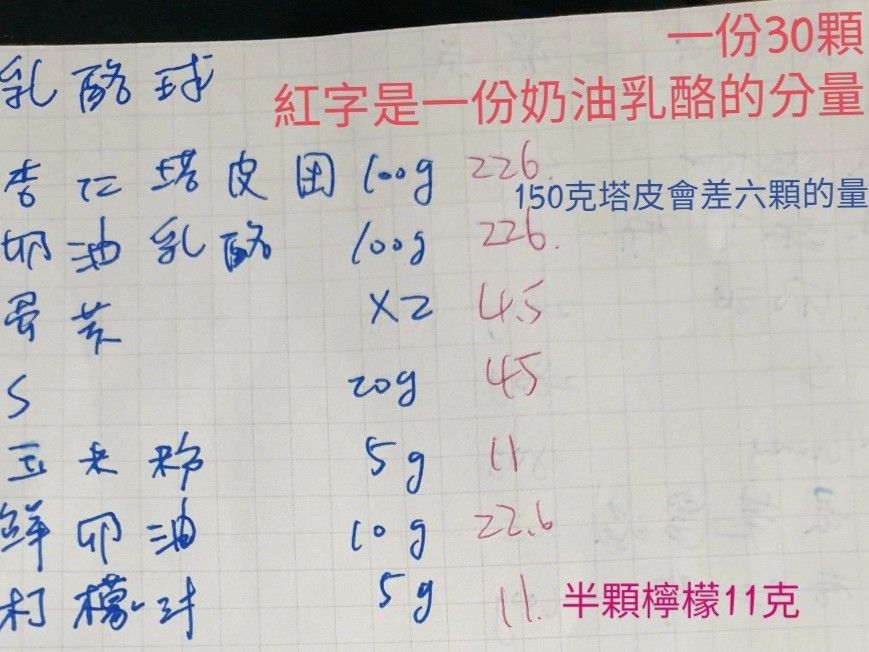 一份30顆
乳酪球
紅字是一份奶油乳酪的分量
杏仁塔皮团 100g 226.
150克塔皮會差六顆的量
奶油乳酪 100g 226.
蛋黃 X2 4.5
S 20g 45
玉米粉 5g 11
鮮奶油 10g 22.6
柠檬汁 5g 11. 半顆檸檬11克